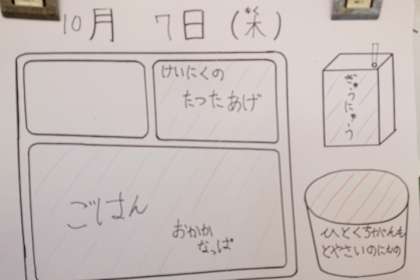 10月 7日(米)
けいにくの
たつたあげ
ぎゅうにゅう
ごはん
おかか
なっぱ
ひとくちがんも
とやさいのにもの